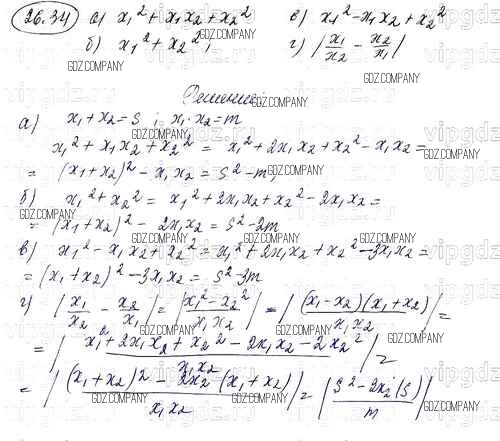 26.34 а) x₁² + x₁x₂ + x₂² в) x₁² - x₁x₂ + x₂²
б) x₁² + x₂²; г) |x₁/x₂ - x₂/x₁|
GDZ.COMPANY
Решение:
а) x₁ + x₂ = s ; x₁ · x₂ = m
x₁² + x₁x₂ + x₂² = x₁² + 2x₁x₂ + x₂² - x₁x₂ =
= (x₁ + x₂)² - x₁x₂ = s² - m;
б) x₁² + x₂² = x₁² + 2x₁x₂ + x₂² - 2x₁x₂ =
= (x₁ + x₂)² - 2x₁x₂ = s² - 2m
в) x₁² - x₁x₂ + x₂² = x₁² + 2x₁x₂ + x₂² - 3x₁x₂ =
= (x₁ + x₂)² - 3x₁x₂ = s² - 3m
г) |x₁/x₂ - x₂/x₁| = |(x₁² - x₂²)/(x₁x₂)| = |((x₁ - x₂)(x₁ + x₂))/(x₁x₂)| =
= |(x₁² + 2x₁x₂ + x₂² - 2x₁x₂ - 2x₂²)/(x₁x₂)| =
= |((x₁ + x₂)² - 2x₂(x₁ + x₂))/(x₁x₂)| = |(s² - 2x₂(s))/m|